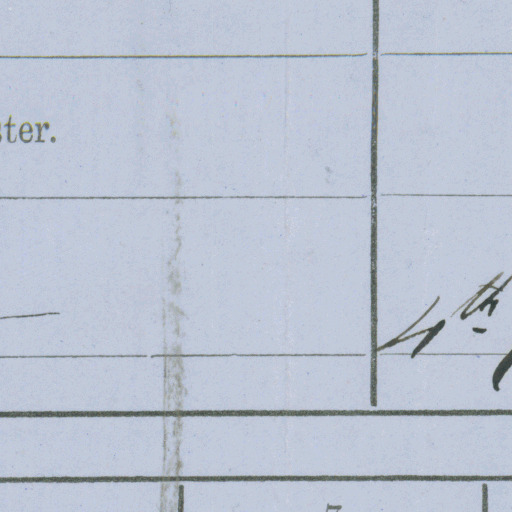 ster.
4th